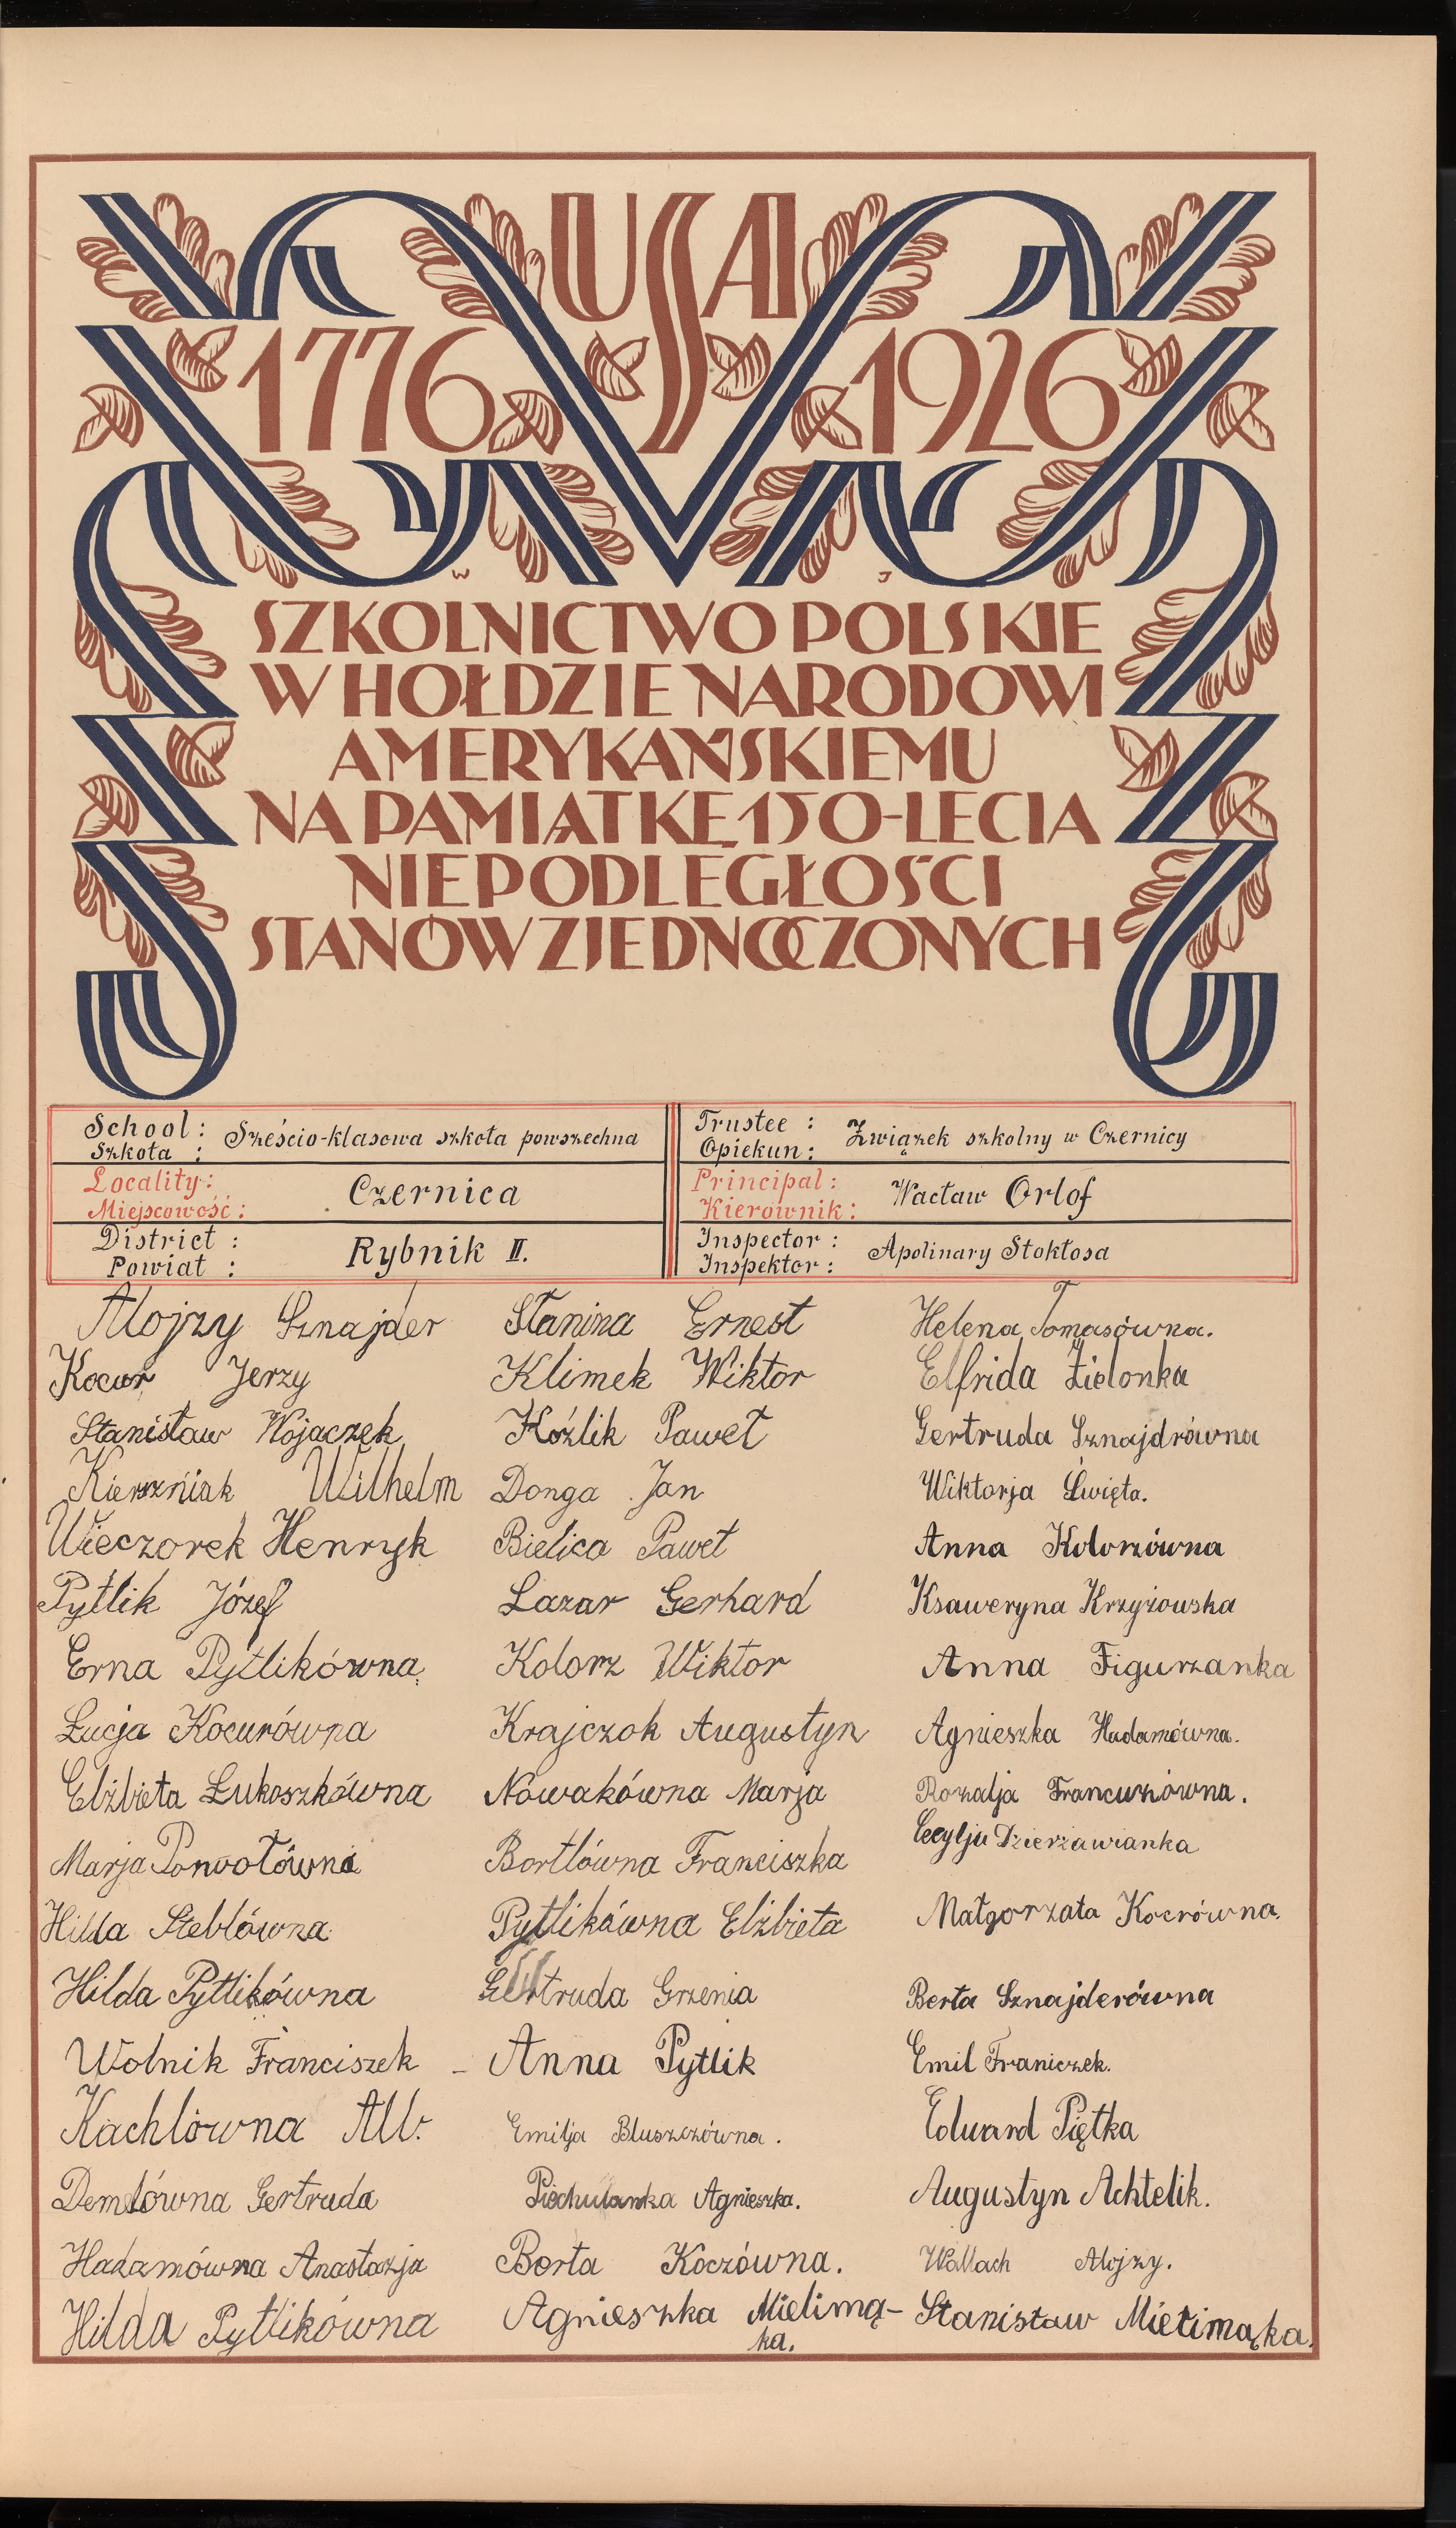 USA
1776 1926
W J
SZKOLNICTWO POLSKIE
W HOŁDZIE NARODOWI
AMERYKAŃSKIEMU
NA PAMIĄTKĘ 150-LECIA
NIEPODLEGŁOŚCI
STANÓW ZJEDNOCZONYCH
School: Sześcio-klasowa szkoła powszechna
Szkoła :
Locality: Czernica
Miejscowość:
District : Rybnik II.
Powiat :
Trustee : Związek szkolny w Czernicy
Opiekun:
Principal: Wacław Orlof
Kierownik:
Inspector : Apolinary Stokłosa
Inspektor :
Alojzy Sznajder
Kocur Jerzy
Stanisław Wojaczek
Wilhelm
Wieczorek Henryk
Pytlik Józef
Erna Pytlikówna
Łucja Kocurówna
Elżbieta Łukoszkówna
Marja
Hilda Steblówna
Hilda Pytlikówna
Wolnik Franciszek –
Kachlówna
Demlówna Gertruda
Hadamówna Anastazja
Hilda Pytlikówna
Stanina Ernest
Klimek Wiktor
Koźlik Paweł
Donga Jan
Bielica Paweł
Lazar Gerhard
Kolorz Wiktor
Krajczok Augustyn
Nowakówna Marja
Bortlówna Franciszka
Pytlikówna Elżbieta
Gertruda Grzenia
Anna Pytlik
Emilja Bluszczówna.
Agnieszka.
Berta Koczówna.
Agnieszka Mielimą-
ka.
Helena Tomasówna.
Elfrida Zielonka
Gertruda Sznajdrówna
Wiktorja Święta.
Anna Kolorzówna
Ksaweryna Krzyżowska
Anna Figurzanka
Agnieszka Hadamówna.
Rozalja Francuzówna.
Cecylja Dzierżawianka
Małgorzata Kocrówna.
Berta Sznajderówna
Emil Franiczek.
Eduard Piętka
Augustyn Achtelik.
Wallach Alojzy.
Stanisław Mielimąka.